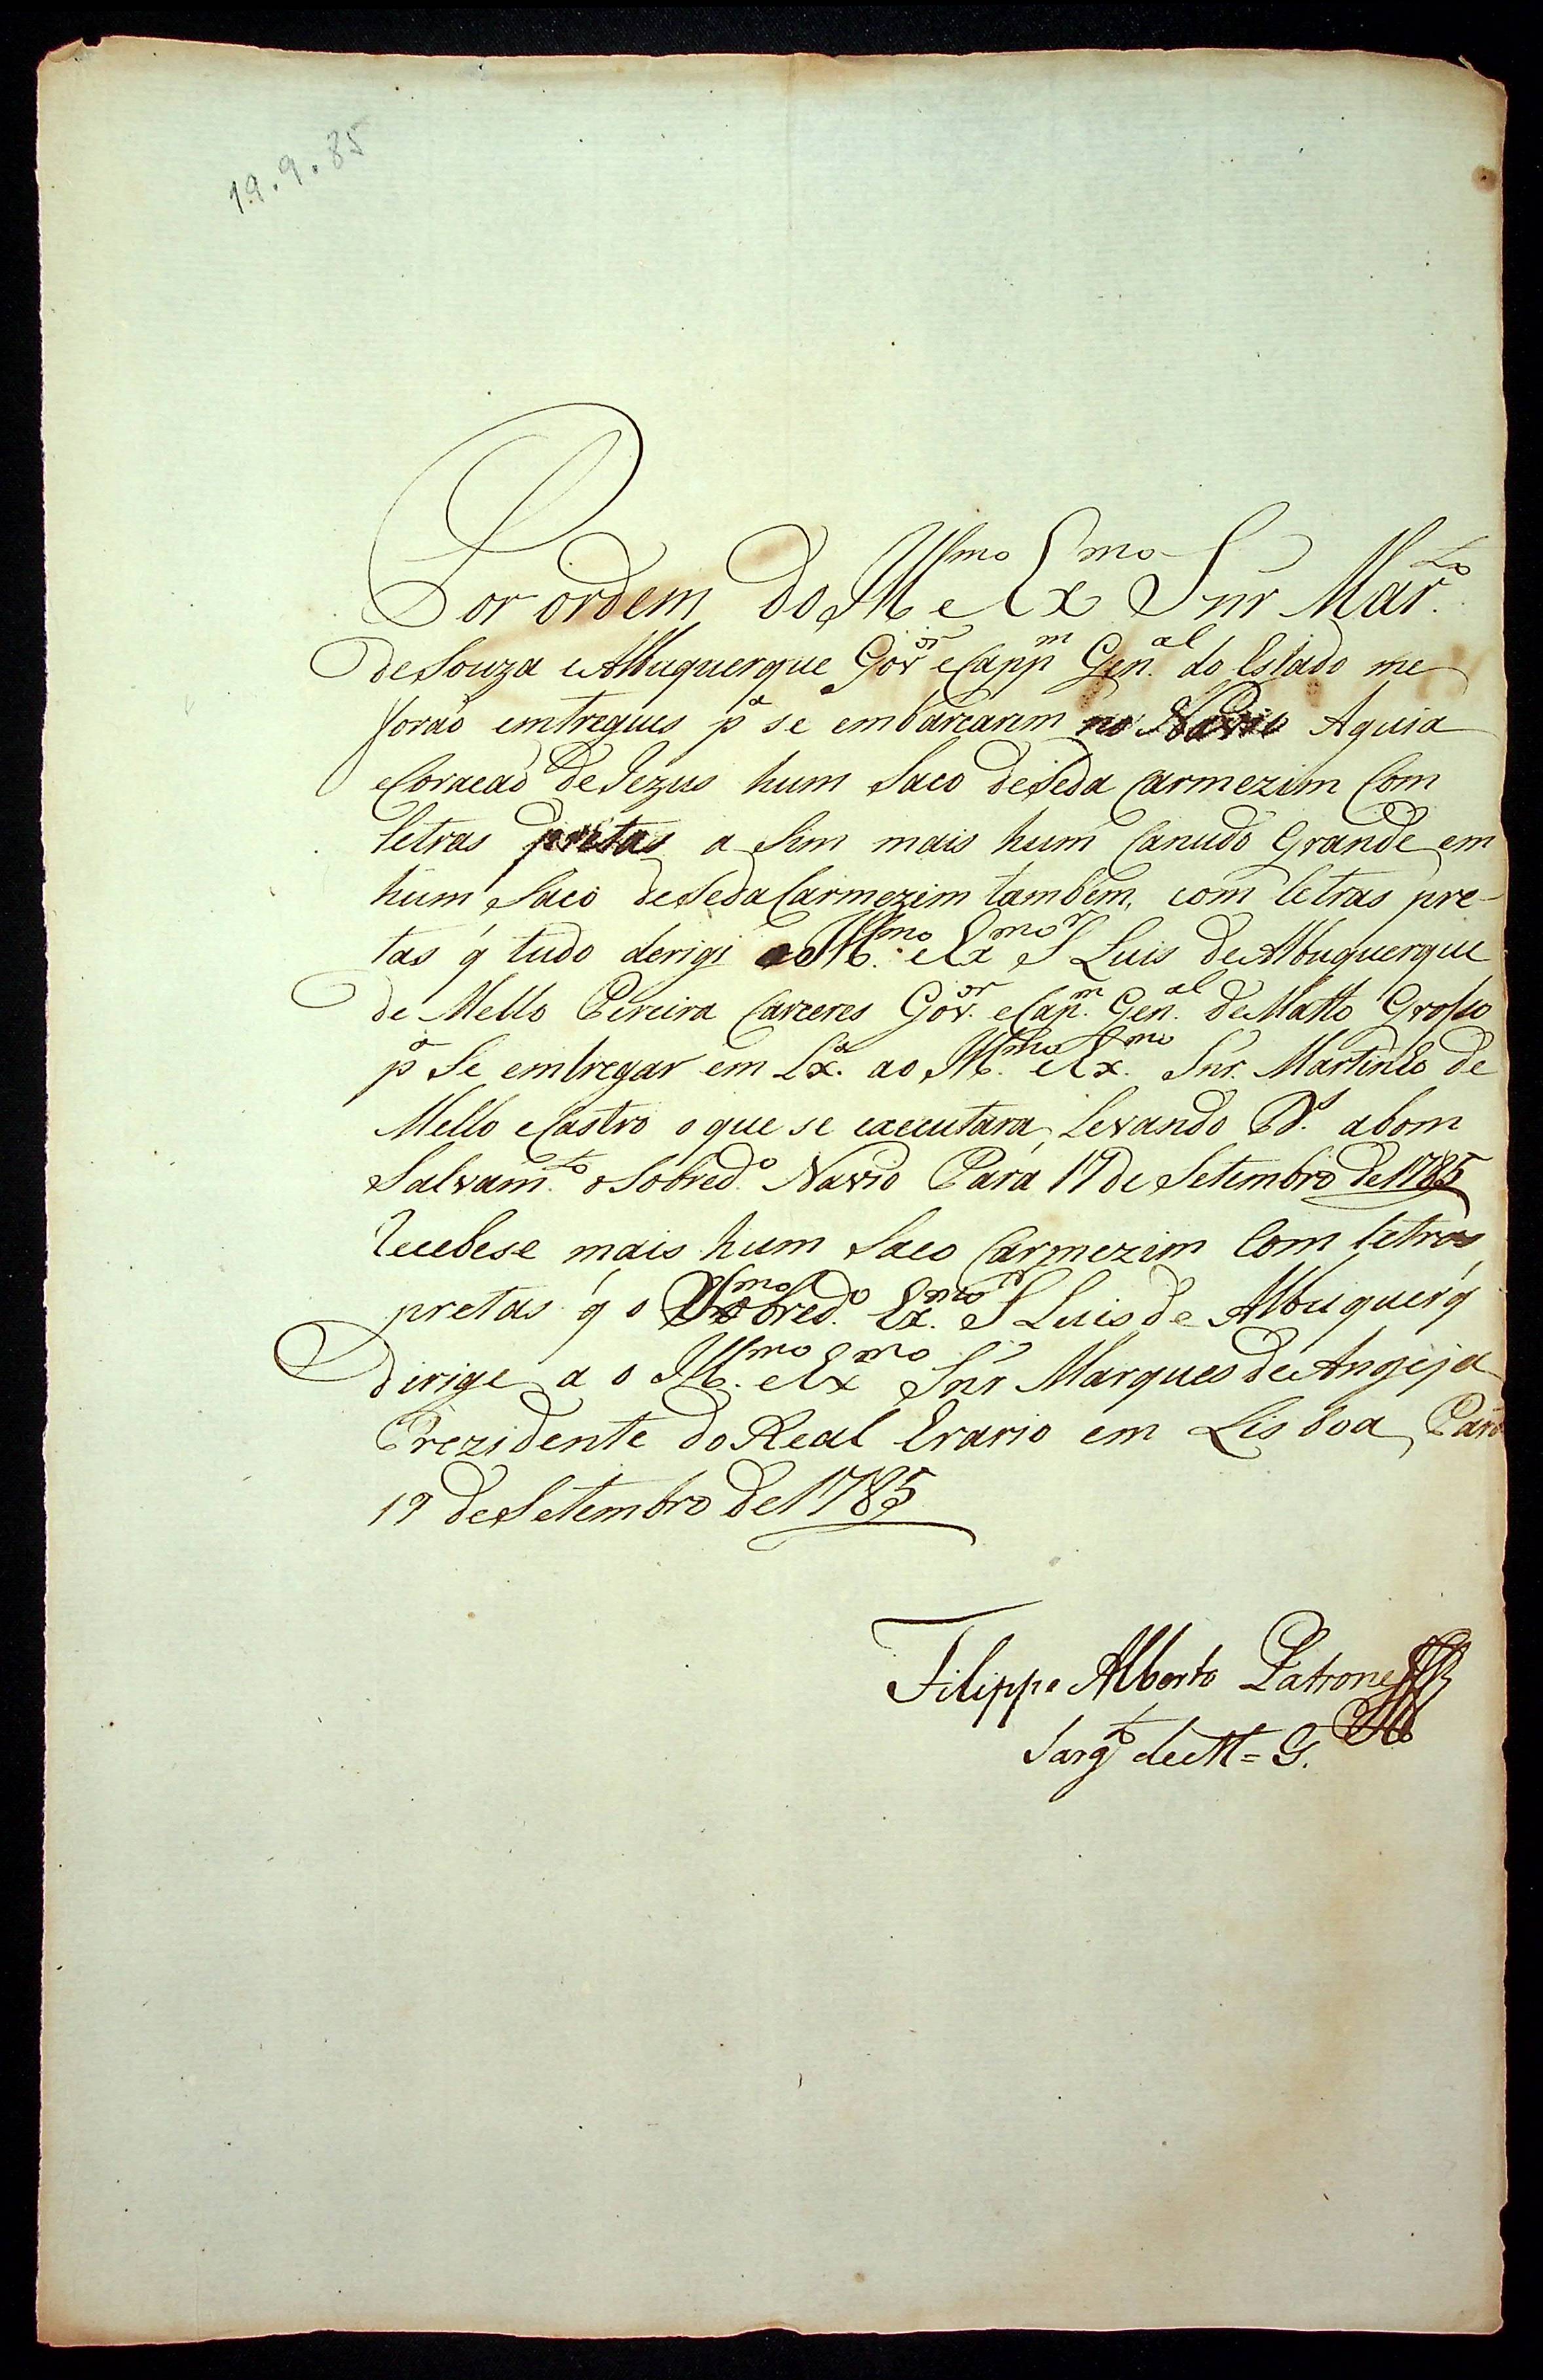 19.9.85
Por ordem do Ill.mo e Ex.mo Snr Mar.to
de Souza e Albuquerque Gov.or e Capp.m Gen.al do Estado me
forão emtregues p.a se embarcarem no Navio Aguia
e Coracao de Jezus hum Saco de Seda Carmezim Com
letras pretas a Sim mais hum Canudo Grande em
hum Saco de Seda Carmezim tambem, com letras pre-
tas q̃ tudo derigi ao Ill.mo e Ex.mo S.r Luis de Albuquerque
de Mello Pereira Carceres Gov.or e Cap.m Gen.al de Matto Grosso
p.a Se emtregar em Lx.a ao Ill.mo e Ex.mo Snr. Martinho de
Mello e Castro o que se executará, Levando D.s a bom
Salvam.to o Sobred.o Navio Pará 17 de Setembro de 1785
Recebese mais hum Saco Carmezim Com letras
pretas q̃ o Sobred.o Ex.mo S.r Luis de Albuquerq̃
dirige a o Ill.mo e Ex.mo Snr Marques de Angeja
Prezidente do Real Erario em Lisboa, Pará
19 de Setembro de 1785
Filippe Alberto Patrone
Sarg.to de M=G.